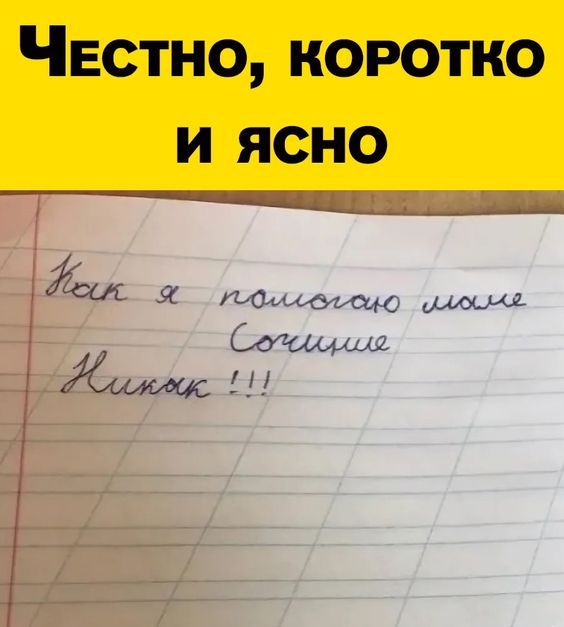 Честно, коротко
и ясно
Как я помогаю маме
Сочиние
Никак!!!